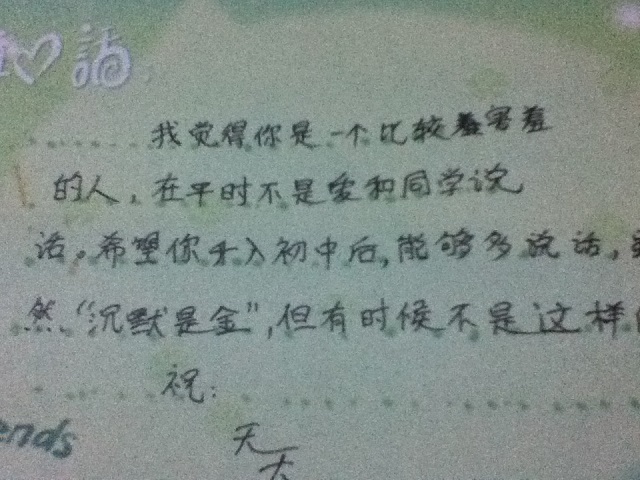 ♡話
我觉得你是一个比较害羞
的人，在平时不是爱和同学说
话。希望你升入初中后，能够多说话，虽
然“沉默是金”，但有时候不是这样
祝：
ends
天